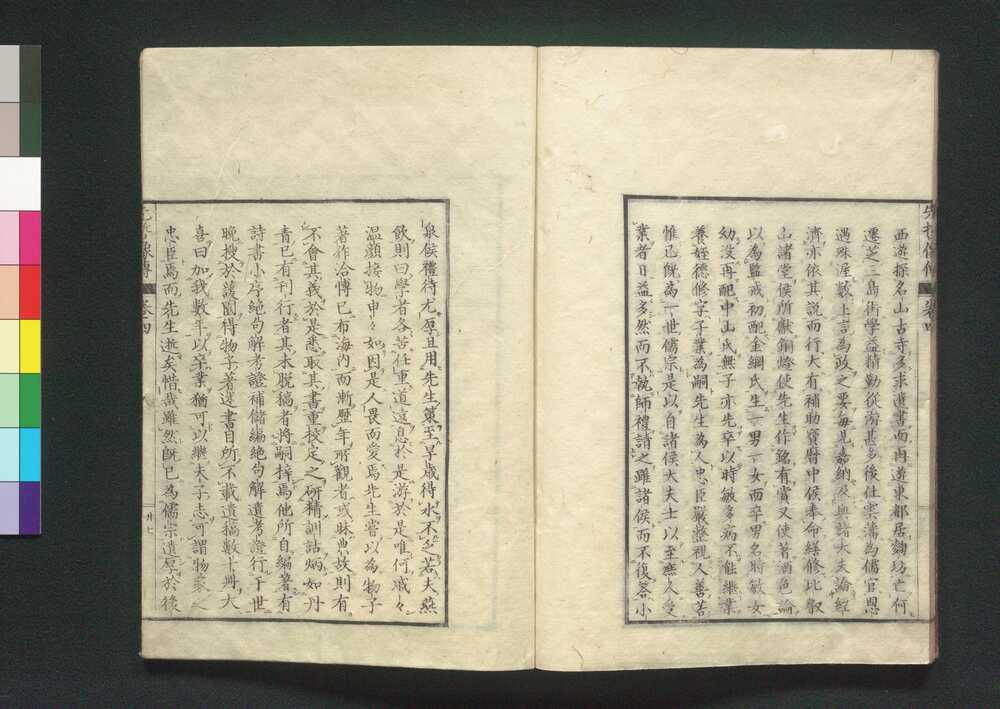 西遊探名山古寺多求遺書而再遊東都居鞠功亡何
遷芝三島術學益精勤從游甚多後仕寒藩為儒官恩
遇殊渥數上言為政之要每見嘉納及與諸大夫論經
濟亦依其說而行大有補助寶曆中侯奉命繕修比叡
山諸堂侯所獻銅燈使先生作銘有賞又使著酒色論
以為監戒初配金綱氏生一男一女而卒男名時敏女
幼沒再配中山氏無子亦先卒以時敏多病不能繼業
養姪德修字子業為嗣先生為人忠臣嚴澄視人善若
惟己既為一世儒宗是以自諸侯大夫士以至庶人受
業者日益多然而不執師禮請之雖諸侯而不復答小
泉侯禮待尤厚且用先生策至旱歲得水不乏若夫燕
飲則曰學者各苦任重道遠息於是游於是唯何戚々
溫顏接物申々如因是人畏而愛焉先生嘗以為物子
著作洽博已布海內而漸歷年所觀者或昧典故則有
不會其義於是悉取其書重校定之研精訓詁炳如丹
青已有刊行者其未脫稿者將嗣梓焉他所自編著有
詩書小序絕句解考證補儲編絕句解遺考證行于世
晚搜於護園得物子著述書目所不載遺稿數十冊大
喜曰加我數年以卒業猶可以繼夫子志可謂物家之
忠臣焉而先生逝矣惜哉雖然既已為儒宗遺厚於後
先哲像傳
卷四
廿七